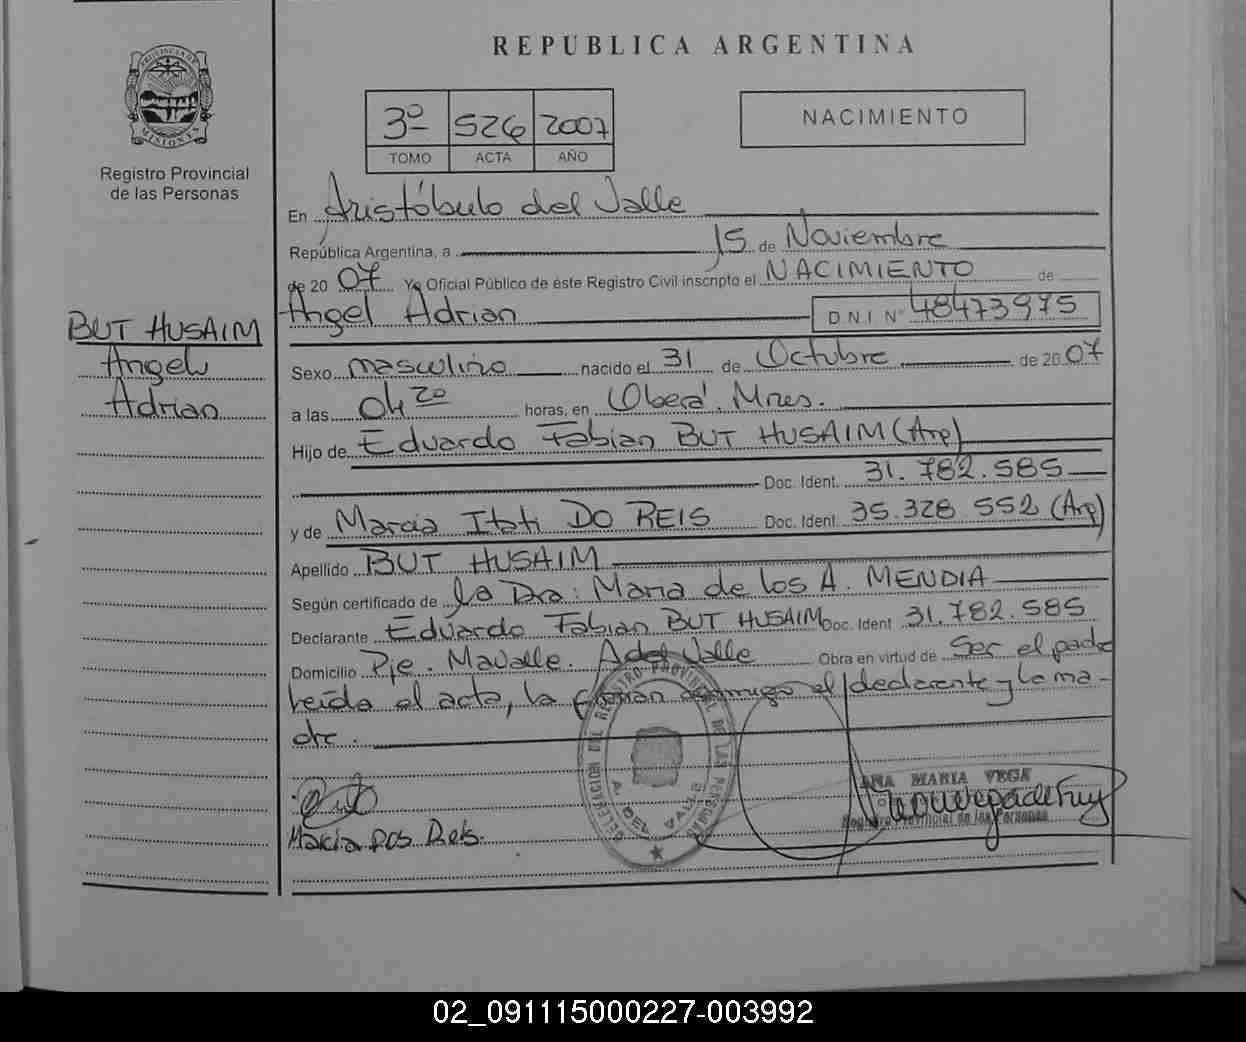 REPUBLICA ARGENTINA
PROVINCIA DE MISIONES
Registro Provincial
de las Personas
3º 526 2007
TOMO ACTA AÑO
NACIMIENTO
En Aristóbulo del Valle
República Argentina, a 15 de Noviembre
de 20 07 Yo Oficial Público de éste Registro Civil inscripto el NACIMIENTO de
Angel Adrian D.N.I. Nº 48473975
BUT HUSAIM
Angel
Adrian
Sexo masculino nacido el 31 de Octubre de 20 07
a las 04 20 horas, en Oberá. Mnes.
Hijo de Eduardo Fabian BUT HUSAIM (Arg)
Doc. Ident. 31.782.585
y de Marcia Itati DO REIS Doc. Ident. 35.328 552 (Arg)
Apellido BUT HUSAIM
Según certificado de la Dra: Maria de los A. MENDIA
Declarante Eduardo Fabian BUT HUSAIM Doc. Ident 31.782.585
Domicilio Pje. Mavalle. A del Valle Obra en virtud de Ser el padre
leida el acta, la firman conmigo el declarante y la ma-
dre.
DELEGACION DEL REGISTRO PROVINCIAL DE LAS PERSONAS
A. DEL VALLE
ANA MARIA VEGA
Registro Provincial de las Personas
Marcia Dos Reis.
02_091115000227-003992